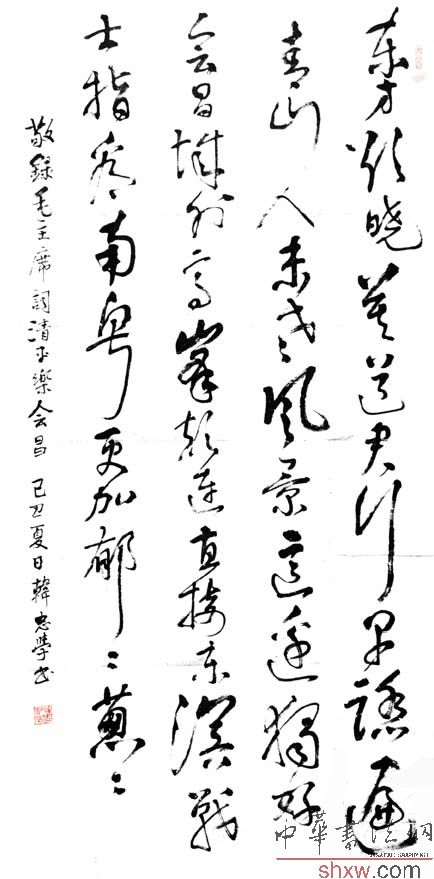 东方欲晓莫道君行早踏遍
青山人未老风景这边独好
会昌城外高峯颠连直接东溟战
士指看南粤更加郁々葱々
敬録毛主席詞清平樂会昌 己丑夏日韓忠學书
中華書法網
shxw.com